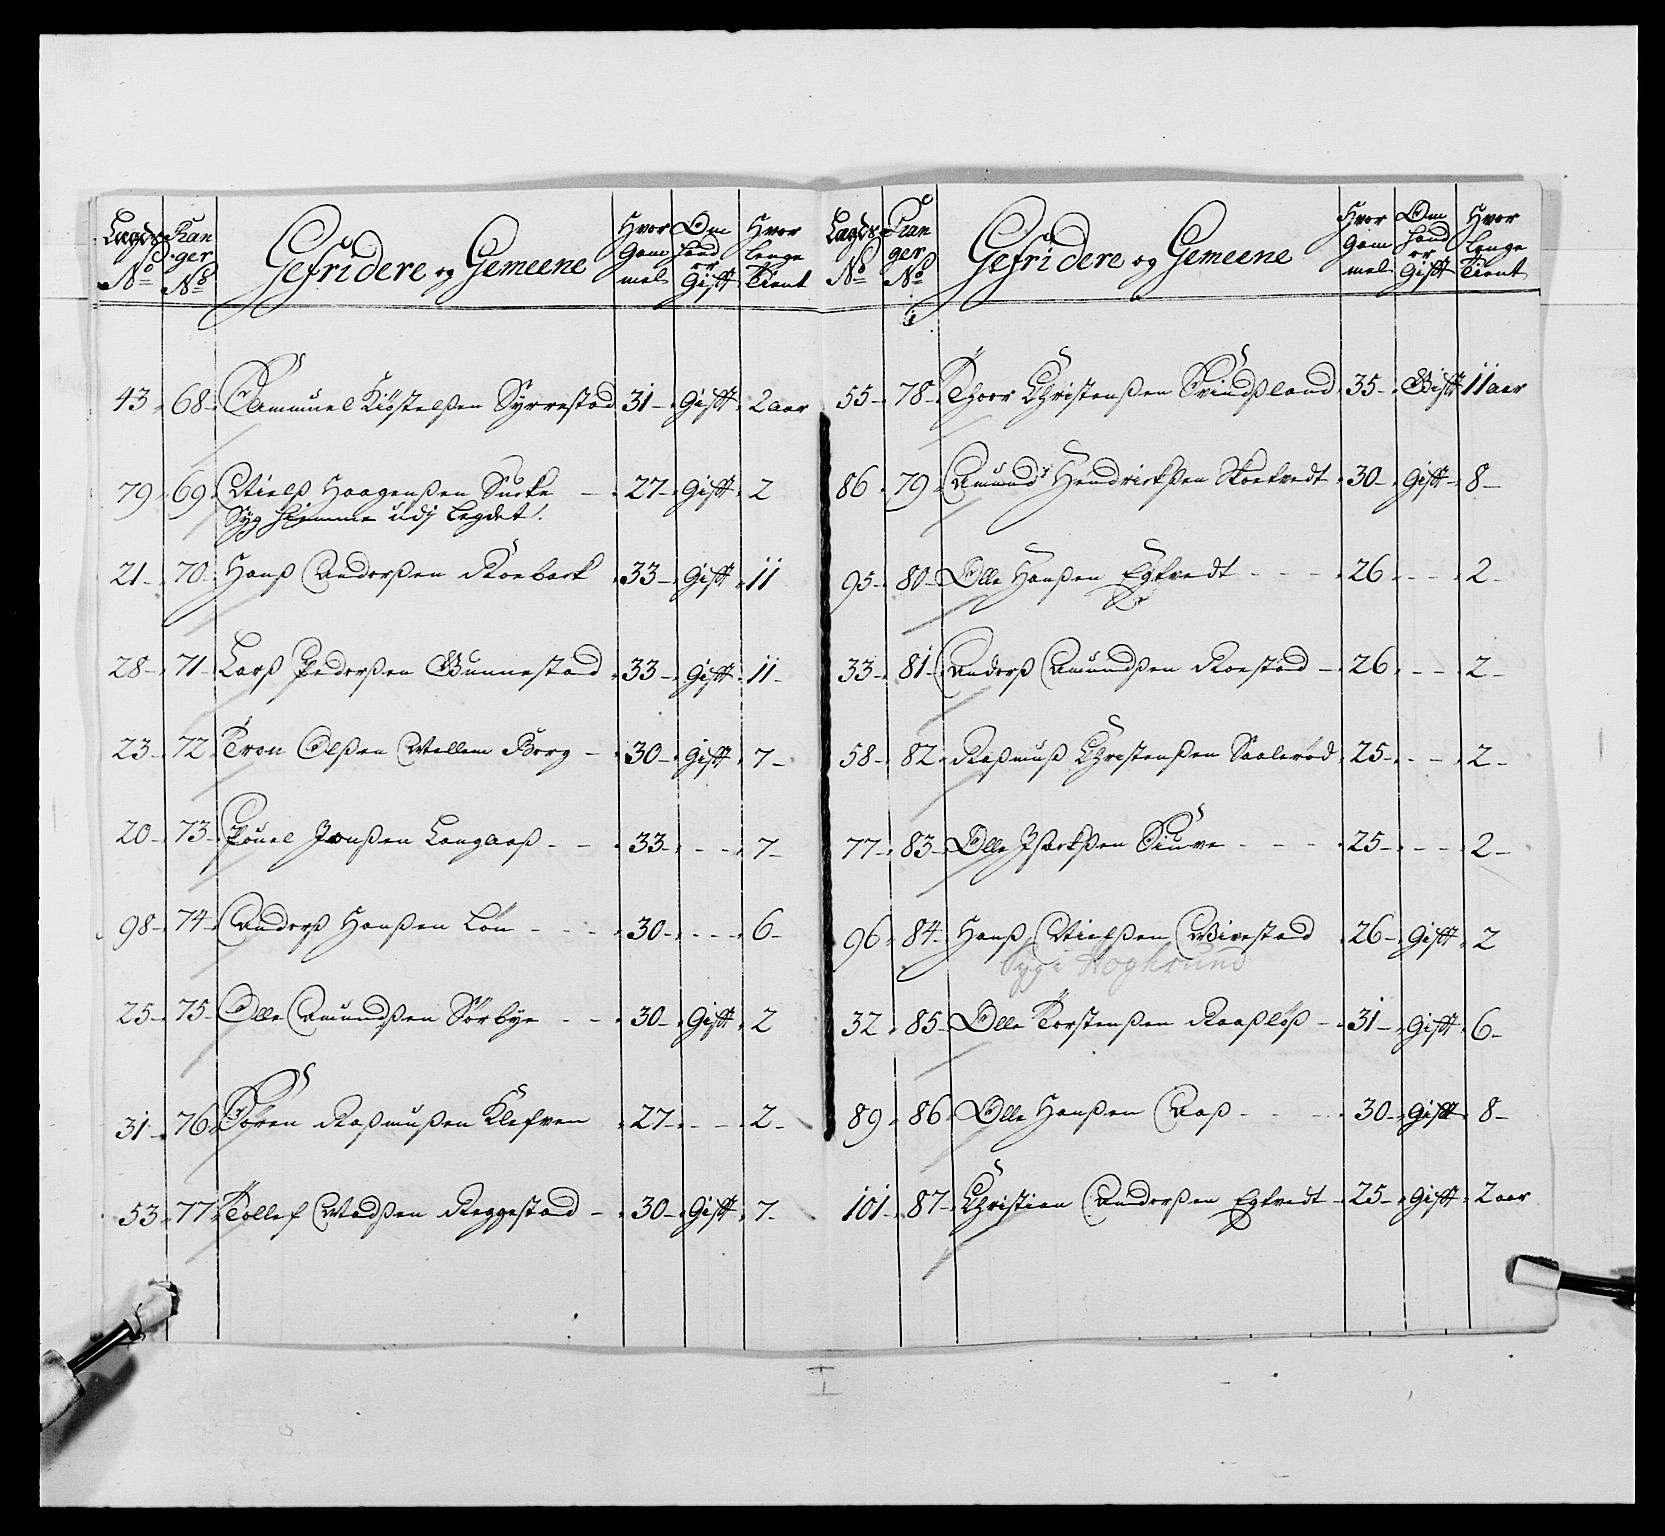 Lægds No | Ranger No | Gefridere og Gemeene | Hvor Gammel | Om hand er Gift | Hvor lenge Tient
43 | 68 | Samuuel Kiøstelßen Syrrestad | 31 | Gifft | 2 aar
79 | 69 | Nielß Haagenßen Sucke | 27 | Gifft | 2
Syg hiemme udj Legdet
21 | 70 | Hanß Anderßen Roeback | 33 | Gifft | 11
28 | 71 | Larß Pederßen Gunnestad | 33 | Gifft | 11
23 | 72 | Tron Olßen Mellem Borg | 30 | Gifft | 7
20 | 73 | Pouel Jonßen Langaaß | 33 | - - | 7
98 | 74 | Anderß Hanßen Løn | 30 | - - | 6
25 | 75 | Olle Amundßen Sørbye | 30 | Gifft | 2
31 | 76 | Søren Raßmußen Klefven | 27 | - - | 2
53 | 77 | Tollef Madßen Reggestad | 30 | Gifft | 7
Lægds No | Ranger No | Gefridere og Gemeene | Hvor Gammel | Om hand er Gift | Hvor lenge Tient
55 | 78 | Thoor Christenßen Svindßland | 35 | Gifft | 11 aar
86 | 79 | Amund Hendrickßen Skoekvedt | 30 | Gifft | 8
95 | 80 | Olle Hanßen Egkvedt | 26 | - - | 2
33 | 81 | Anderß Amundßen Roestad | 26 | - - | 2
58 | 82 | Raßmuß Christenßen Saalerød | 25 | - - | 2
77 | 83 | Olle Jsackßen Siuve | 25 | - - | 2
96 | 84 | Hanß Nielßen Vivestad | 26 | Gifft | 2
Syg i
32 | 85 | Olle Torstenßen Raaßløß | 31 | Gifft | 6
89 | 86 | Olle Hanßen Aaß | 30 | Gifft | 8
101 | 87 | Christian Anderßen Egkvedt | 25 | Gifft | 2 aar